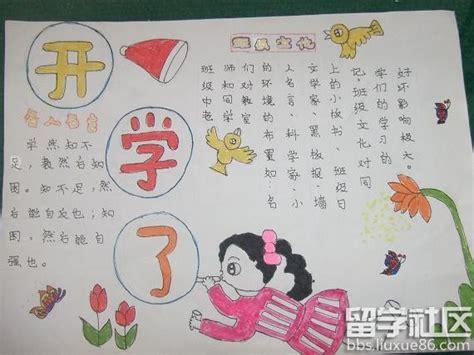 开
学
了
名人名言
学然知不
足,教然后知
困。知不足,然
后能自反也;知
困,然后能自
强也。
班级文化
班级中老
师和同学
们对教室
的环境的布置如:名
人名言、科学家、小
文学家、黑板报、墙
上的小板书、班级日
记,班级文化对同
学们的学习的
好坏影响极大。
留学社区
bbs.liuxue86.com